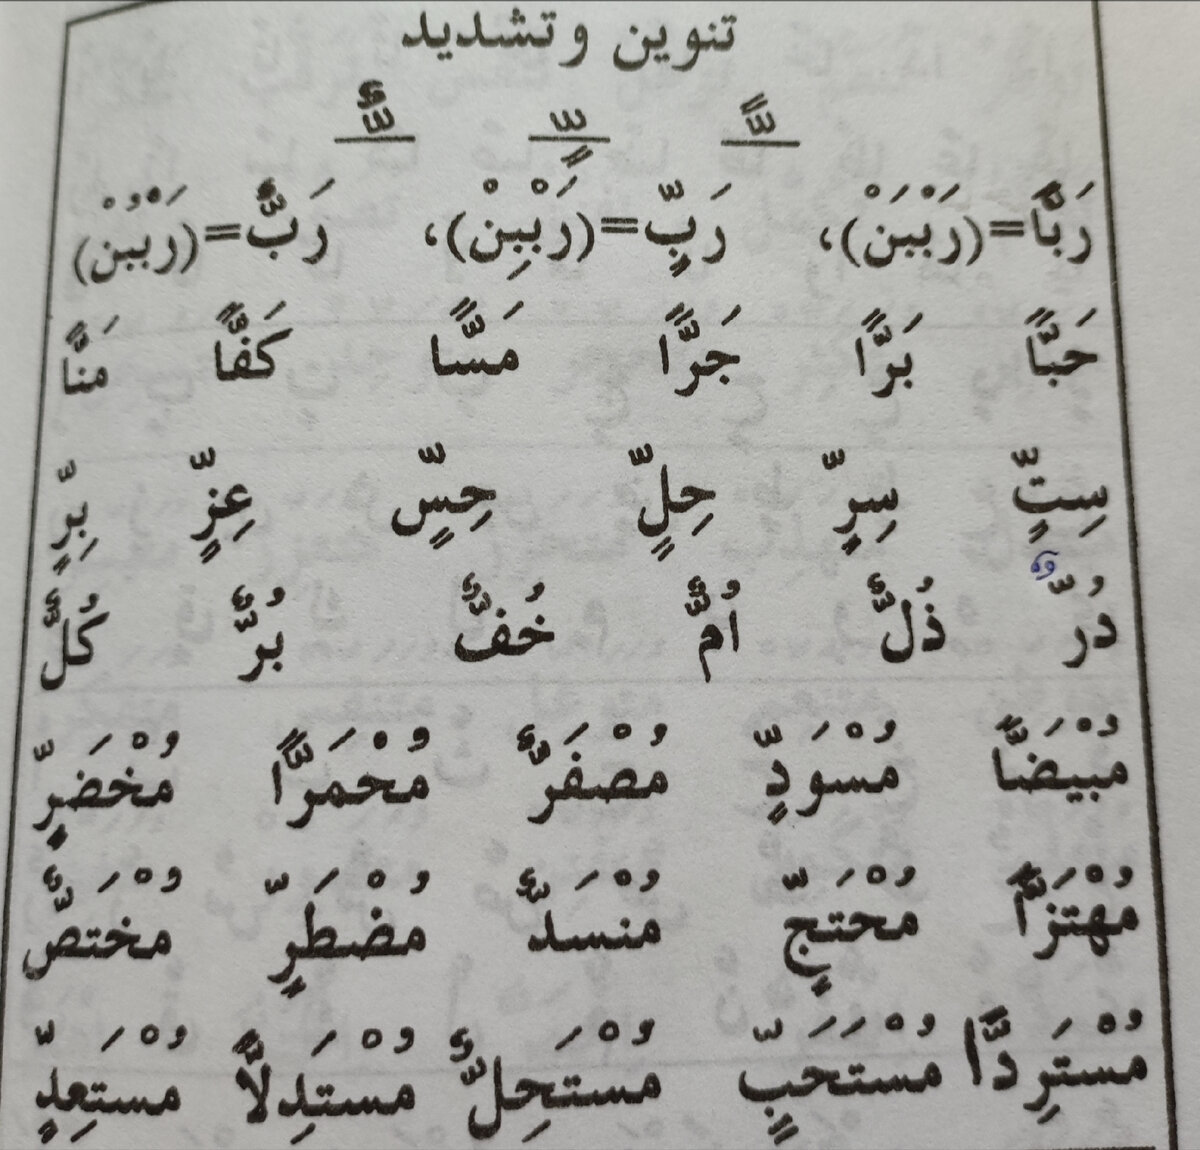 تنوين وتشديد
ـًّـ ـٍّـ ـٌّـ
رَبًّا=(رَبْبَنْ)، رَبٍّ=(رَبْبِنْ)، رَبٌّ=(رَبْبُنْ)
حَبًّا بَرًّا جَرًّا مَسًّا كَفًّا مَنًّا
سِتٍّ سِرٍّ حِلٍّ حِسٍّ عِزٍّ بِرٍّ
دُرٌّ ذُلٌّ اُمٌّ خُفٌّ بُرٌّ كُلٌّ
مُبْيَضًّا مُسْوَدٍّ مُصْفَرٌّ مُحْمَرًّا مُخْضَرٍّ
مُهْتَزًّا مُحْتَجٍّ مُنْسَدٌّ مُضْطَرٍّ مُخْتَصٌّ
مُسْتَرِدًّا مُسْتَحَبٍّ مُسْتَحِلٌّ مُسْتَدِلًّا مُسْتَعِدٍّ